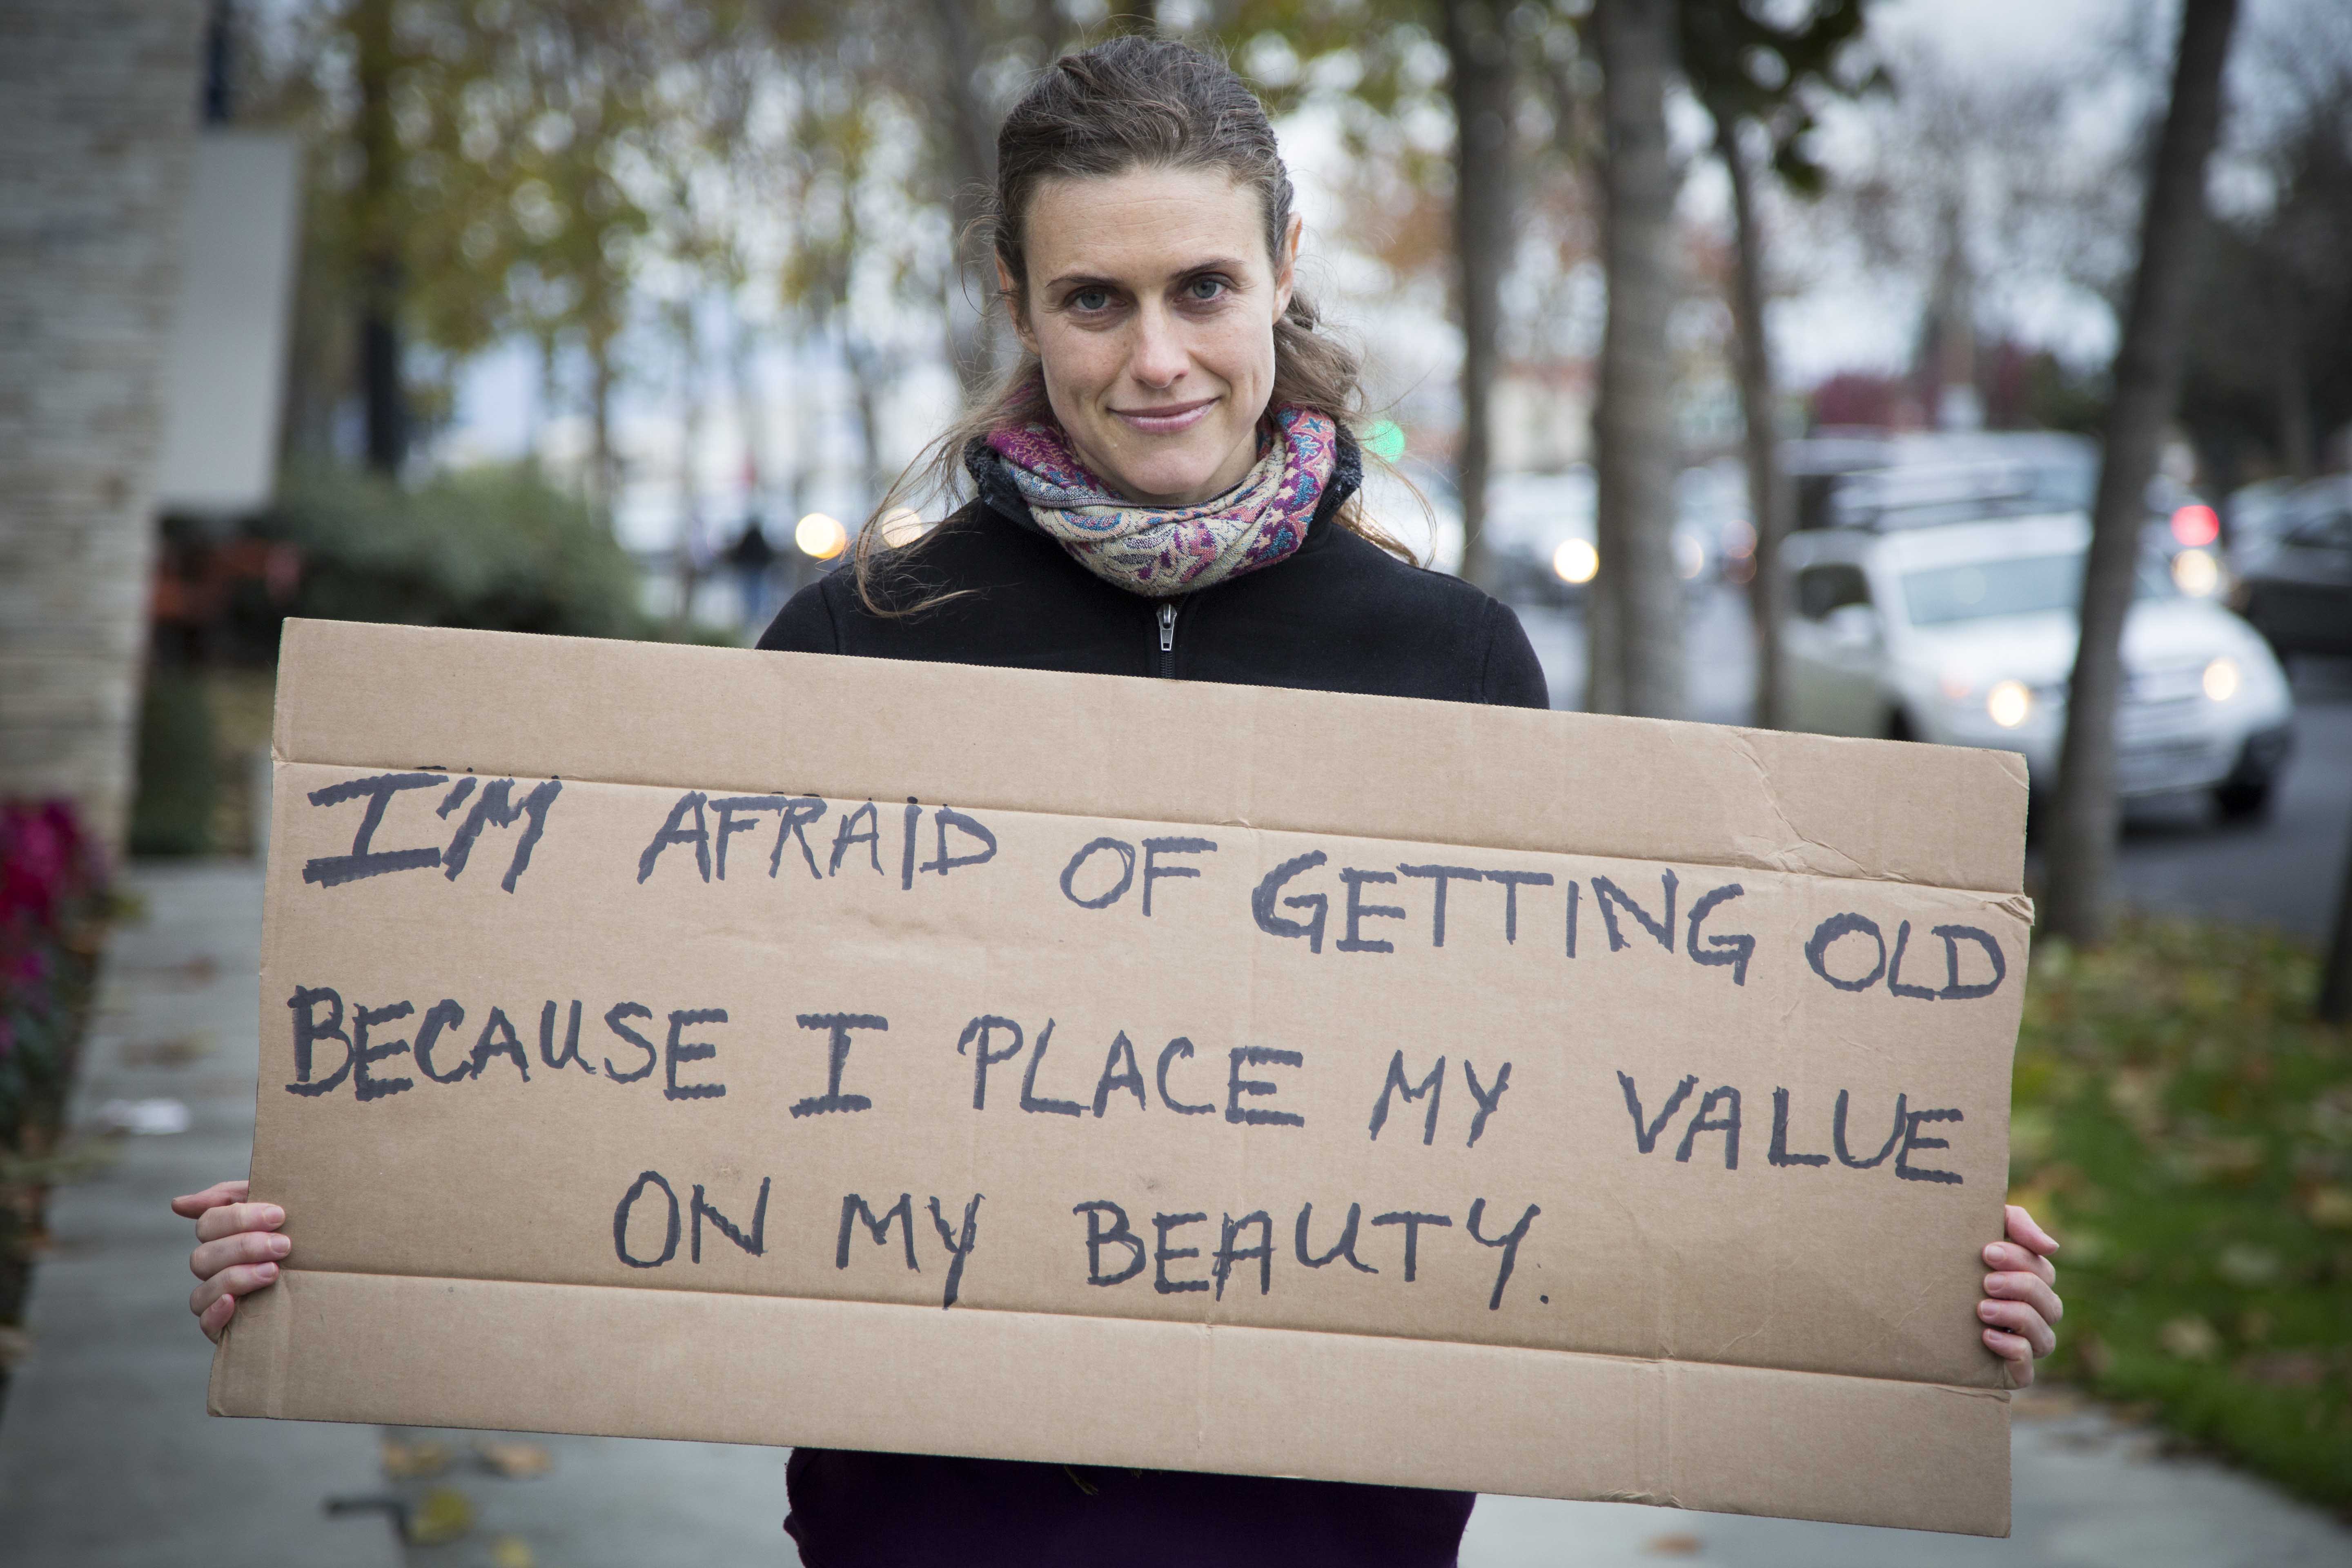 I'M AFRAID OF GETTING OLD
BECAUSE I PLACE MY VALUE
ON MY BEAUTY.